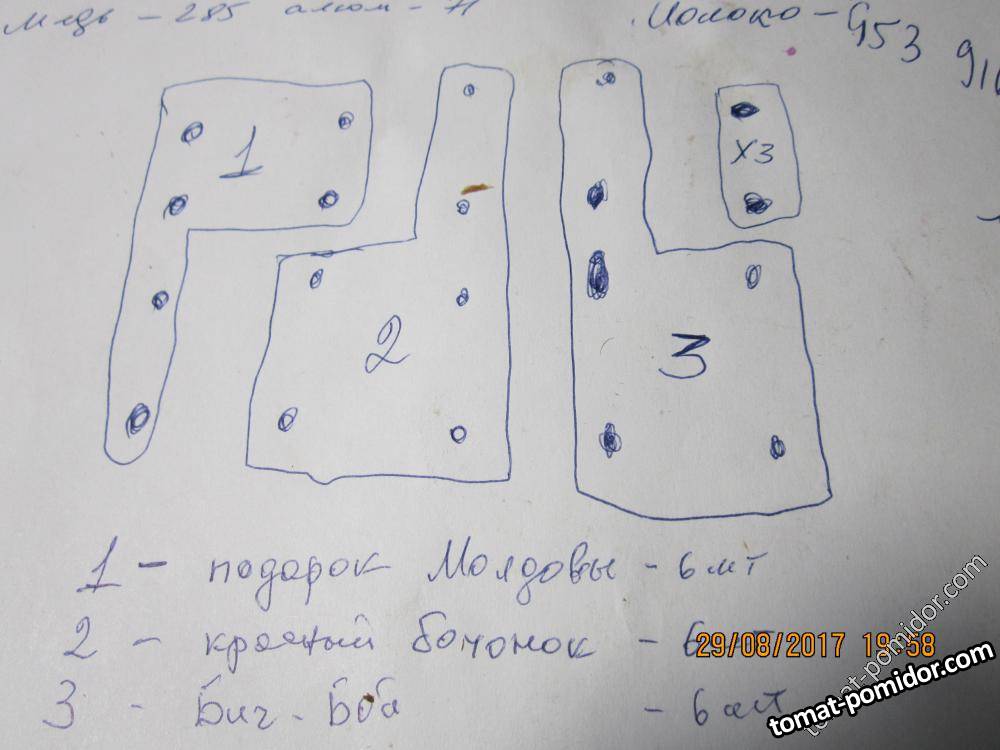 Медь - 285 алюм - 71
Молоко - 953
910
1
2
3
x3
1 - подарок Молдовы - 6 шт
2 - красный бочонок - 6 шт
3 - Биг-Боа - 6 шт
29/08/2017 19:58
tomat-pomidor.com
tomat-pomidor.com